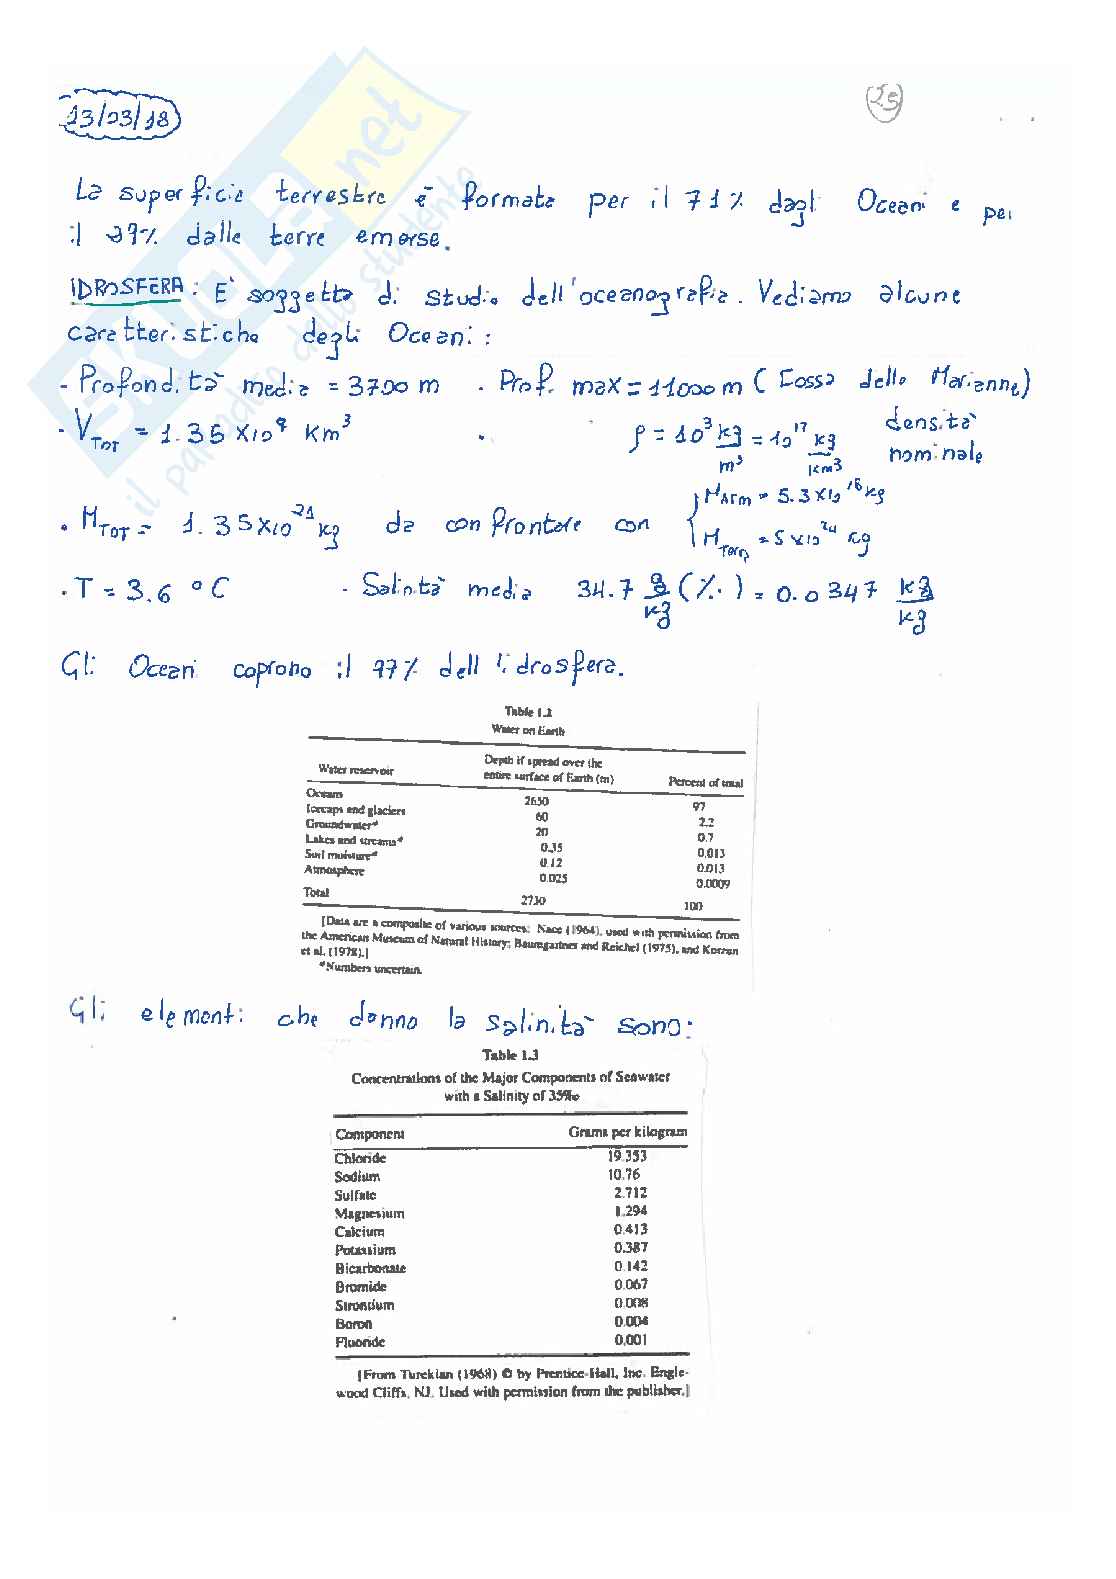 13/03/18
25
La superficie terrestre è formata per il 71% dagli Oceani e per
il 29% dalle terre emerse.
IDROSFERA: E' soggetto di studio dell'oceanografia. Vediamo alcune
caratteristiche degli Oceani:
- Profondità media = 3700 m · Prof. max = 11000 m (Fossa delle Marianne)
· V_TOT = 1.35 x 10⁹ Km³ · ρ = 10³ kg/m³ = 10¹² kg/km³ densità nominale
· M_TOT = 1.35 x 10²¹ kg da confrontare con { M_ATM = 5.3 x 10¹⁸ kg
M_Terra = 5 x 10²⁴ kg
· T = 3.6 °C · Salinità media 34.7 g/kg (%.) = 0.0347 kg/kg
Gli Oceani coprono il 97% dell'idrosfera.
Table 1.2
Water on Earth
Water reservoir Depth if spread over the entire surface of Earth (m) Percent of total
Oceans 2650 97
Icecaps and glaciers 60 2.2
Groundwater* 20 0.7
Lakes and streams* 0.35 0.013
Soil moisture* 0.12 0.013
Atmosphere 0.025 0.0009
Total 2730 100
[Data are a composite of various sources: Nace (1964), used with permission from
the American Museum of Natural History; Baumgartner and Reichel (1975), and Korzun
et al. (1978).]
*Numbers uncertain.
Gli elementi che danno la salinità sono:
Table 1.3
Concentrations of the Major Components of Seawater
with a Salinity of 35‰
Component Grams per kilogram
Chloride 19.353
Sodium 10.76
Sulfate 2.712
Magnesium 1.294
Calcium 0.413
Potassium 0.387
Bicarbonate 0.142
Bromide 0.067
Strontium 0.008
Boron 0.004
Fluoride 0.001
[From Turekian (1968) © by Prentice-Hall, Inc. Engle-
wood Cliffs, NJ. Used with permission from the publisher.]
SKUOLA.net
il paradiso dello studente